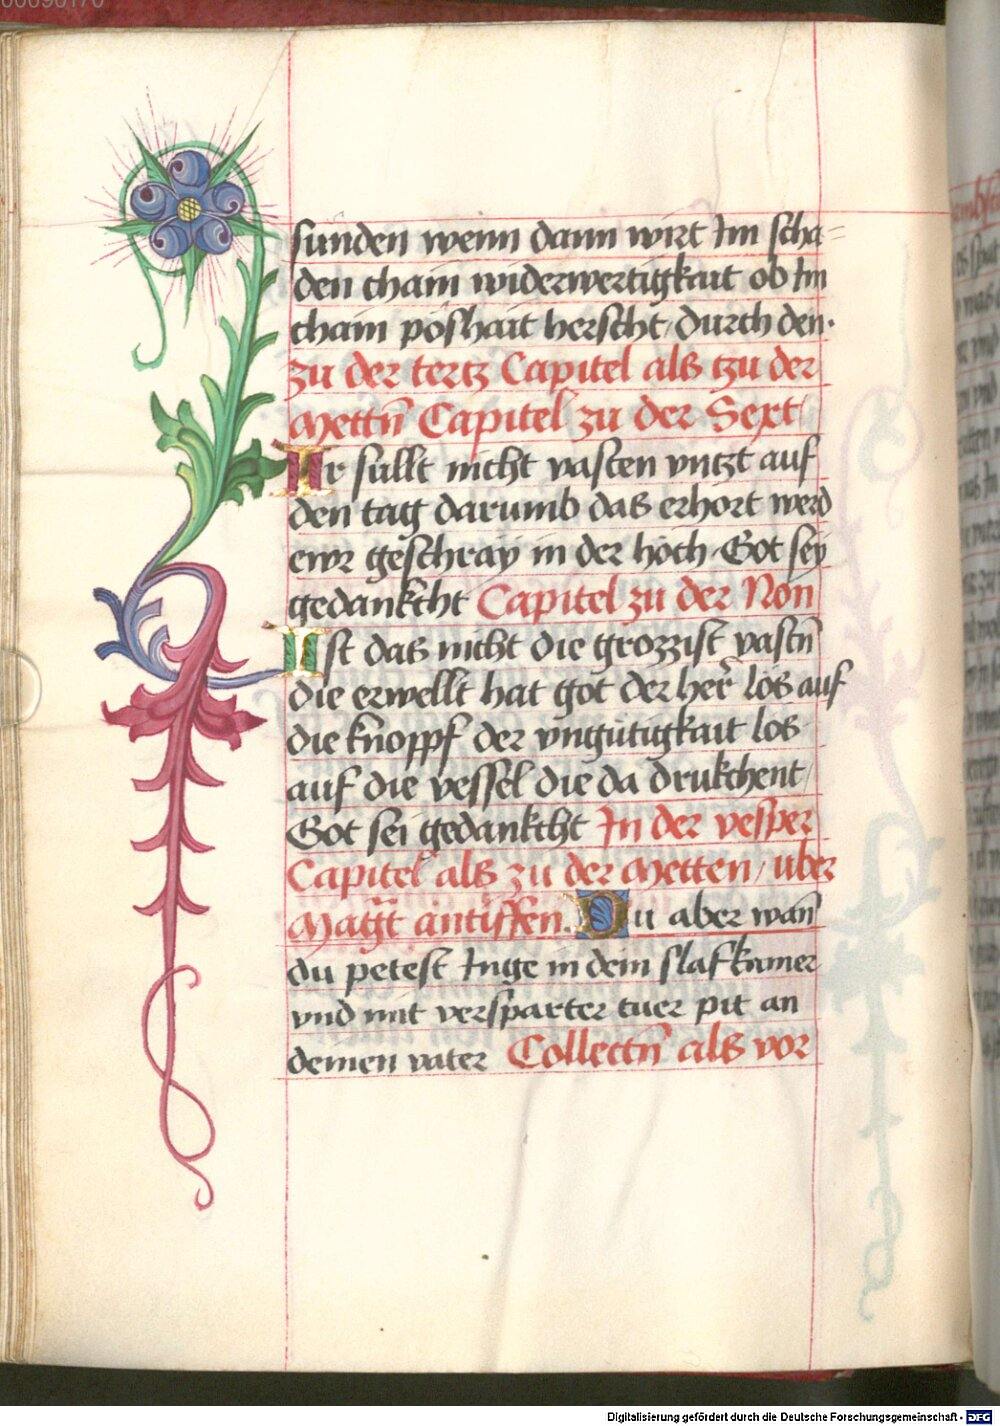 sunden wenn dann wirt Im scha=
den cham widerwertigkait ob Im
cham poshait herscht / durch den.
zu der tertz Capitel als tzu der
Mettn̄ Capitel zu der Sext /
Ir sullt nicht vasten vntzt auf
den tag darumb das erhort werd
ewr geschray in der hoch / Got sey
gedankcht Capitel zu der Non
Ist das nicht die grozzist vastn̄
die erwellt hat got der her̄ los auf
die knopff der vngutigkait los
auf die vessel die da drukchent /
Got sei gedankcht In der vesper
Capitel als zu der Metten / uber
Magt̄ antiffen. Du aber wan̄
du petest Inge in dein slafkamer
vnd mit versparter tuer pit an
deinen vater Collectn̄ als vor
Digitalisierung gefördert durch die Deutsche Forschungsgemeinschaft - DFG